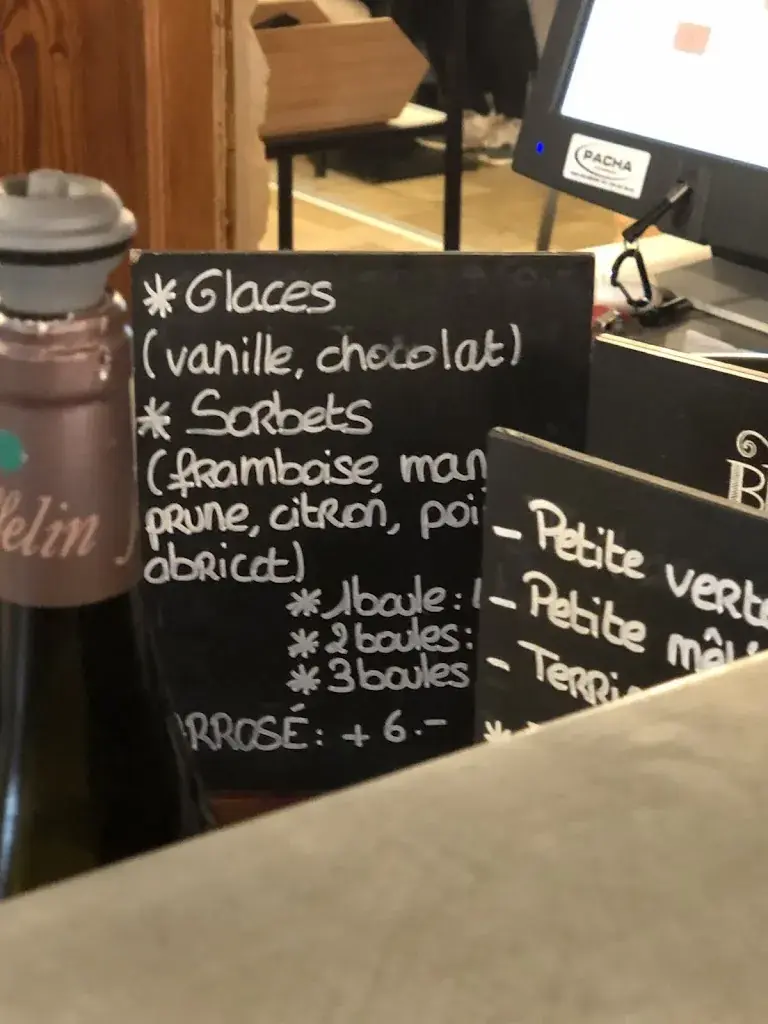 PACHA
* Glaces
(vanille, chocolat)
* Sorbets
(framboise, man
prune, citron, poi
abricot)
* 1 boule:
* 2 boules:
* 3 boules
ARROSÉ: + 6.-
- Petite verte
- Petite
- Terri
elin